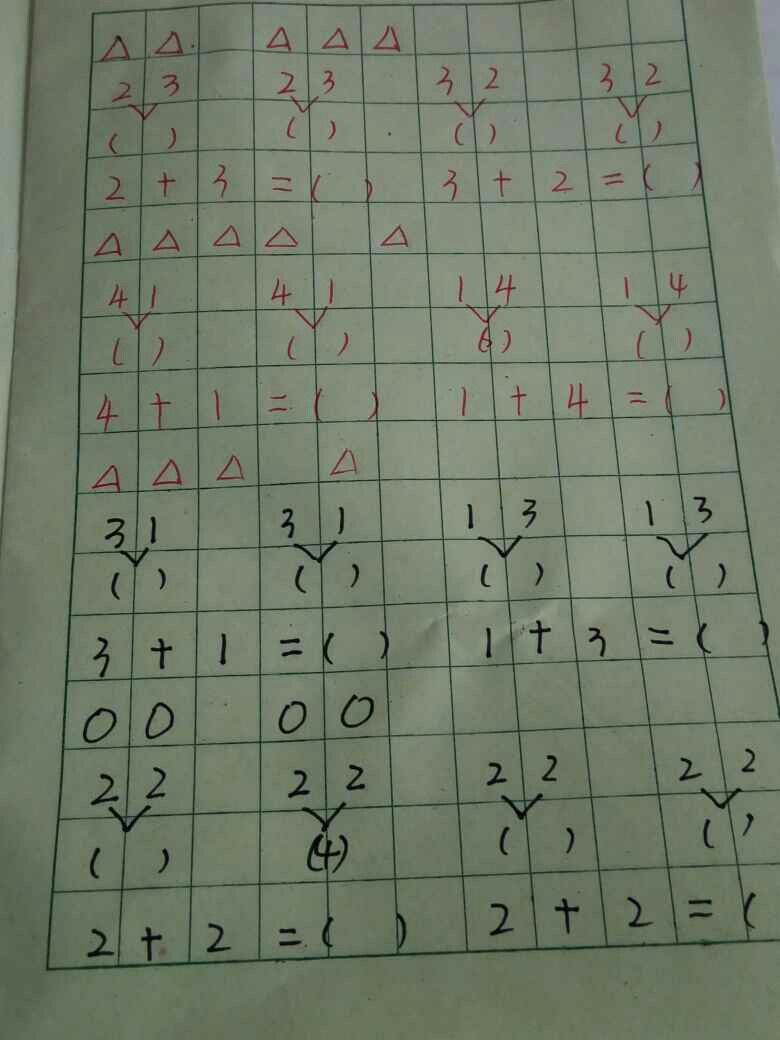 △ △ △ △ △
2 3 2 3 3 2 3 2
( ) ( ) ( ) ( )
2 + 3 = ( ) 3 + 2 = ( )
△ △ △ △ △
4 1 4 1 1 4 1 4
( ) ( ) ( ) ( )
4 + 1 = ( ) 1 + 4 = ( )
△ △ △ △
3 1 3 1 1 3 1 3
( ) ( ) ( ) ( )
3 + 1 = ( ) 1 + 3 = ( )
0 0 0 0
2 2 2 2 2 2 2 2
( ) (4) ( ) ( )
2 + 2 = ( ) 2 + 2 = (